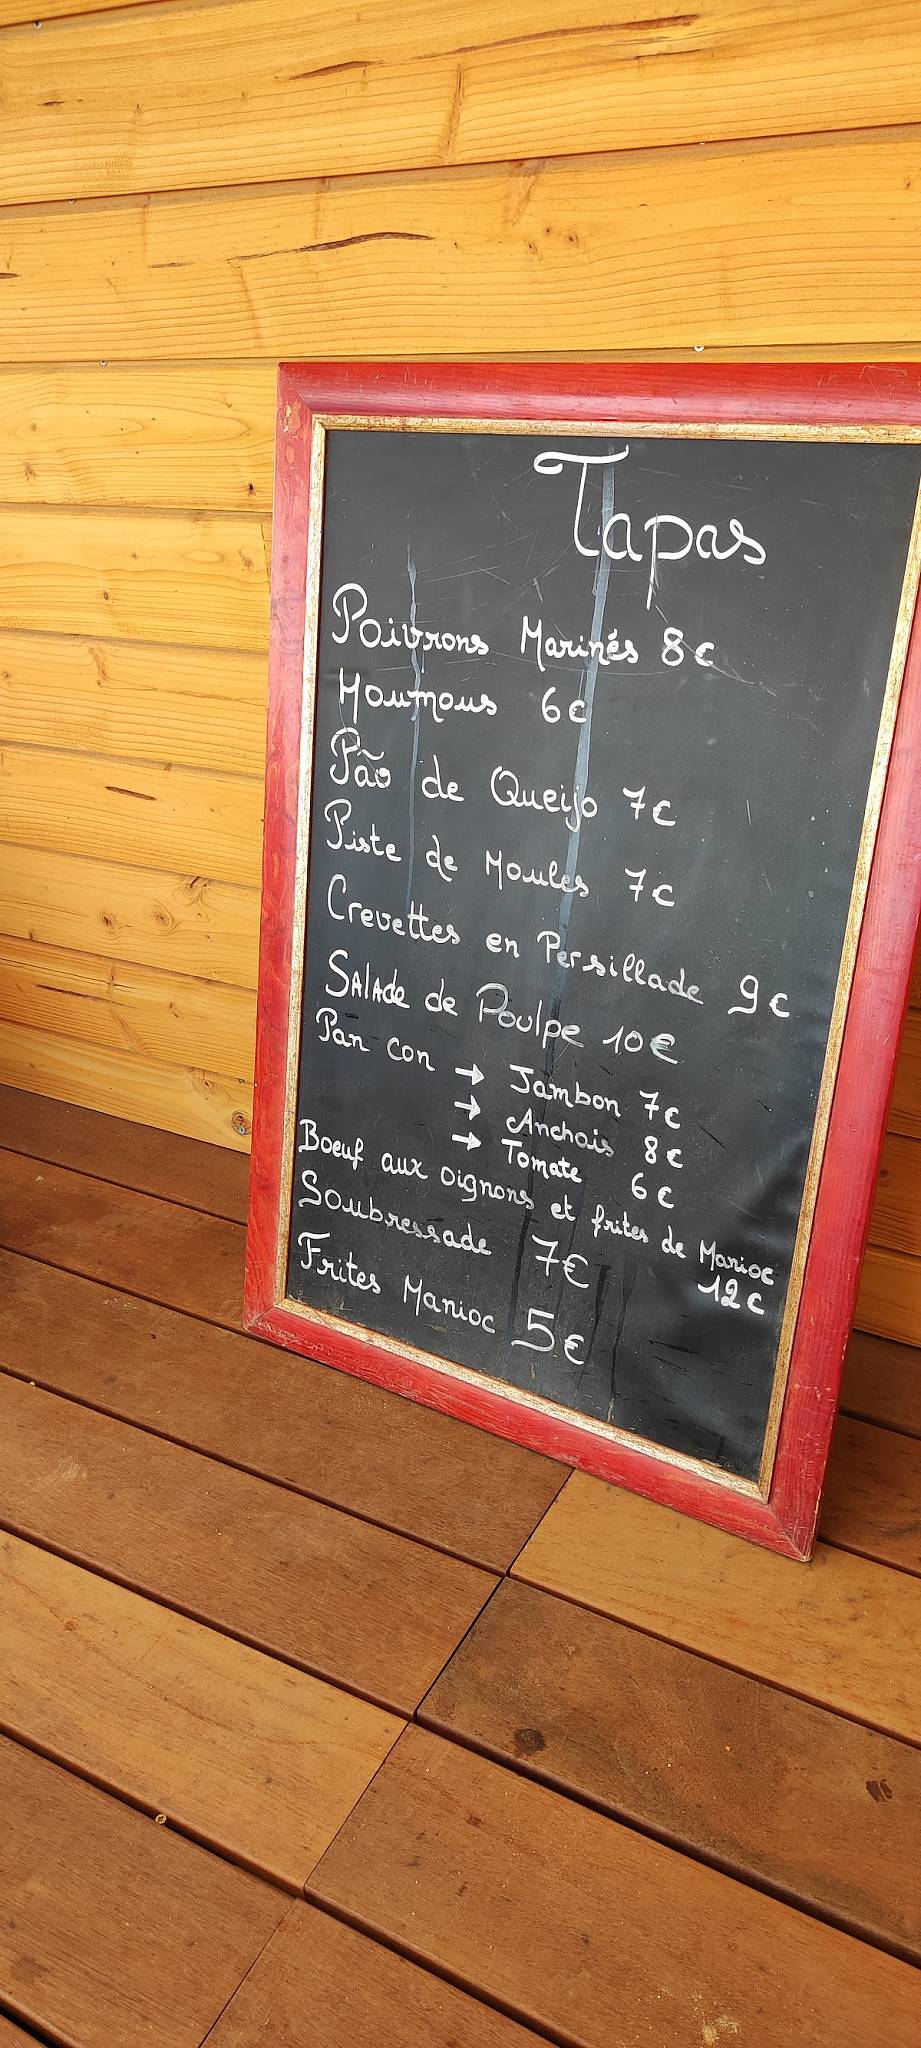 Tapas
Poivrons Marinés 8€
Houmous 6€
Pão de Queijo 7€
Piste de Moules 7€
Crevettes en Persillade 9€
Salade de Poulpe 10€
Pan con → Jambon 7€
→ Anchois 8€
→ Tomate 6€
Boeuf aux oignons et frites de Manioc
12€
Soubressade 7€
Frites Manioc 5€